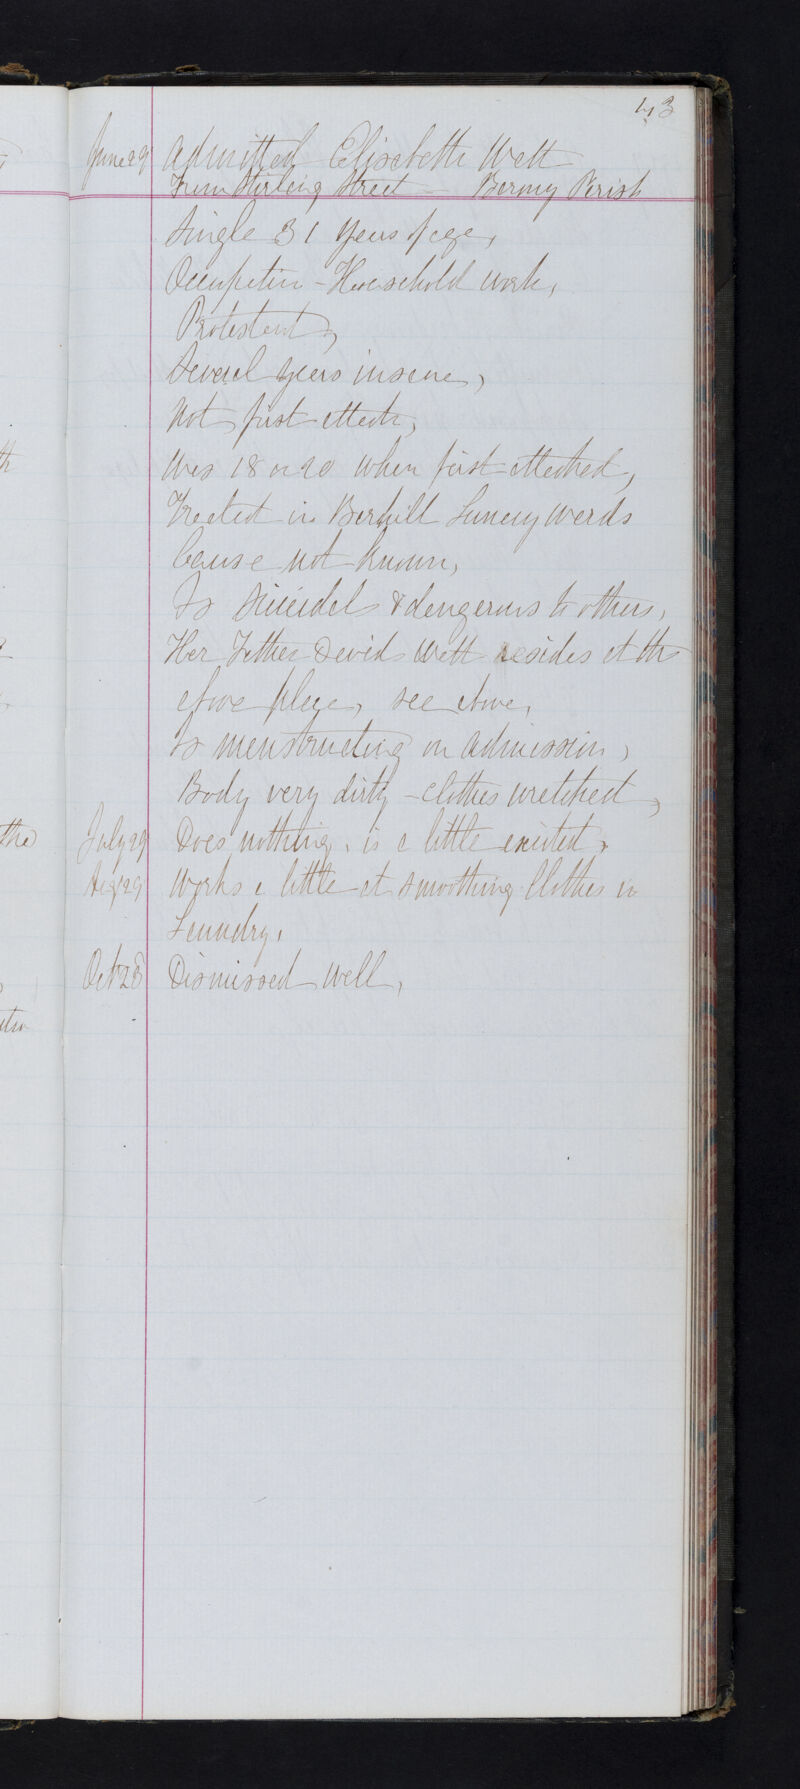 43
June 29 Admitted Elisabeth Watt
From Stirling Street - Barony Parish
Single 31 years of age,
Occupation - Household work,
Protestant,
Several years insane,
Not first attack,
Was 18 or 20 when first attacked,
Treated in Barnhill Lunacy wards
Cause not known,
Is suicidal & dangerous to others,
Her Father David Watt resides at the
above place, see above,
Is menstruating on admission,
Body very dirty - clothes wretched,
July 29 Does nothing, is a little excited,
Aug 29 Works a little at smoothing Clothes in
Laundry,
Oct 28 Dismissed Well,
the